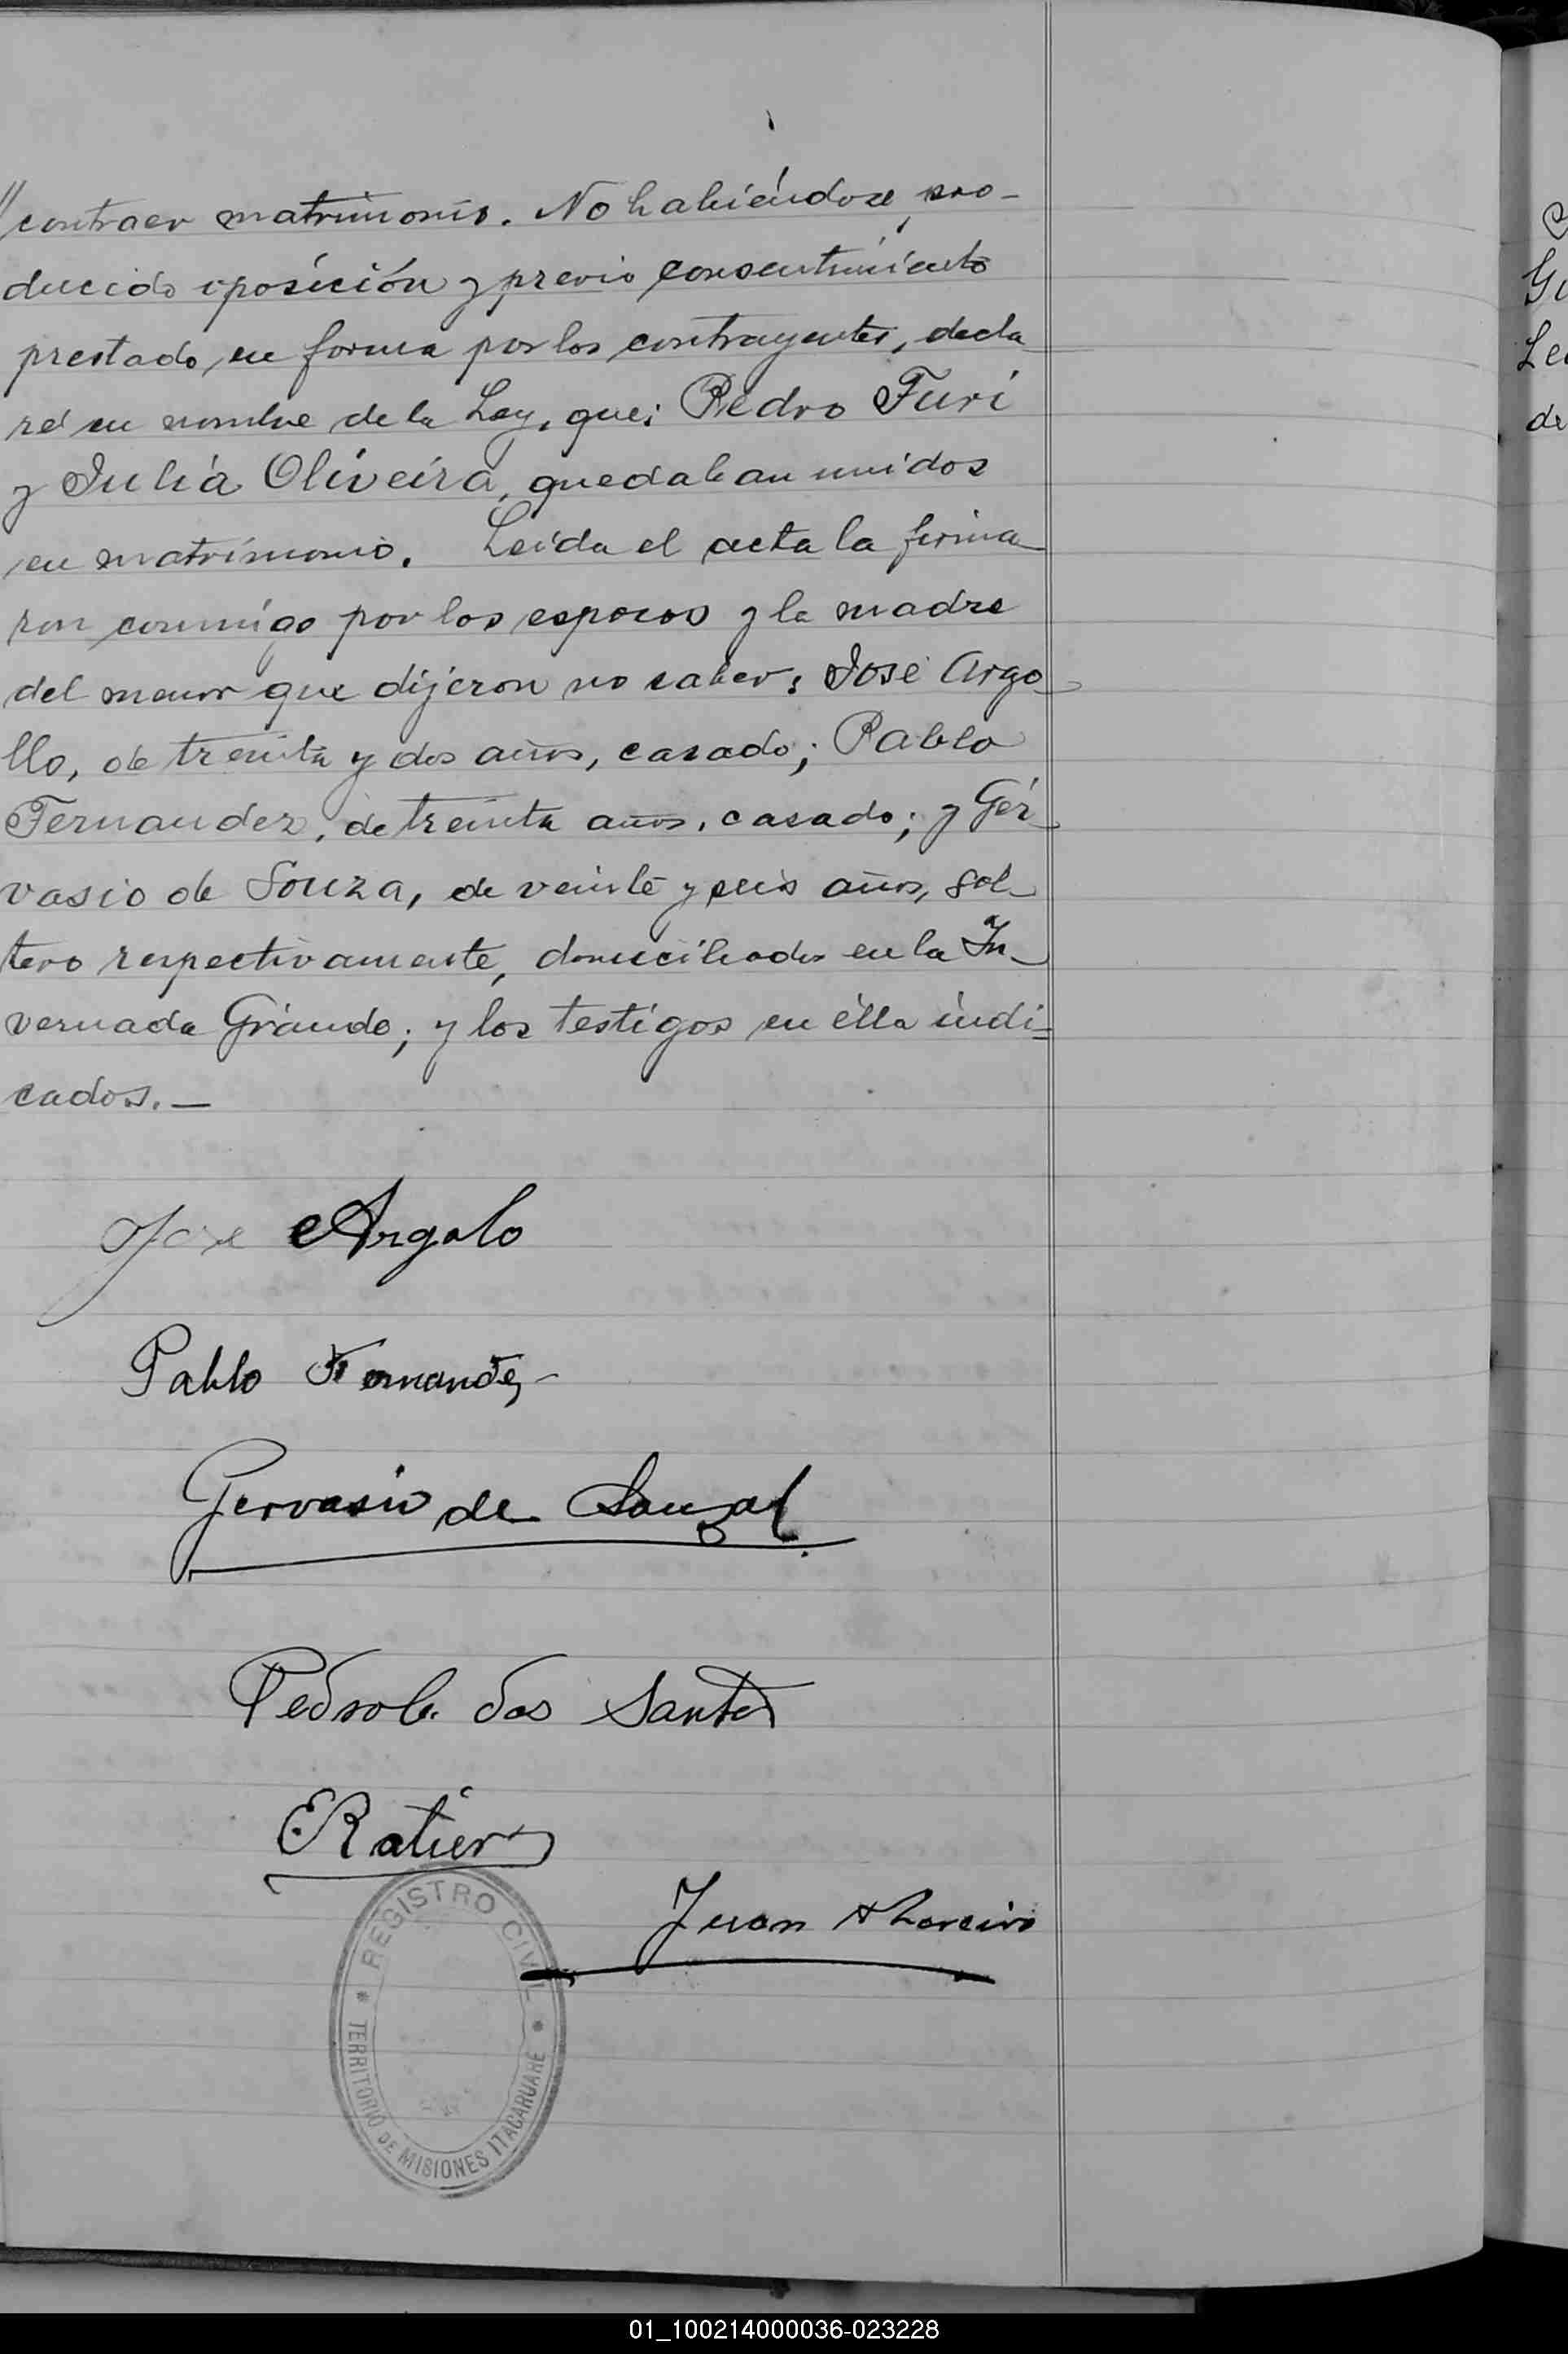 //contraer matrimonio. No habiéndose pro-
ducido oposición y previo consentimiento
prestado en forma por los contrayentes, decla
ré en nombre de la Ley, que: Pedro Furi
y Julia Oliveira, quedaban unidos
en matrimonio. Leida el acta la firma
ron conmigo por los esposos y la madre
del menor que dijeron no saber: José Argo
llo, de treinta y dos años, casado; Pablo
Fernandez, de treinta años, casado; y Ger
vasio de Souza, de veinte y seis años, sol
tero respectivamente, domiciliados en la In
vernada Grande; y los testigos en élla indi=
cados.—
Jose Argolo
Pablo Fernandez
Gervasio de Souza
Pedro dos Santos
ERatier
Juan
REGISTRO CIVIL
TERRITORIO DE MISIONES ITACARUARE
Gu
Le
de
01_100214000036-023228